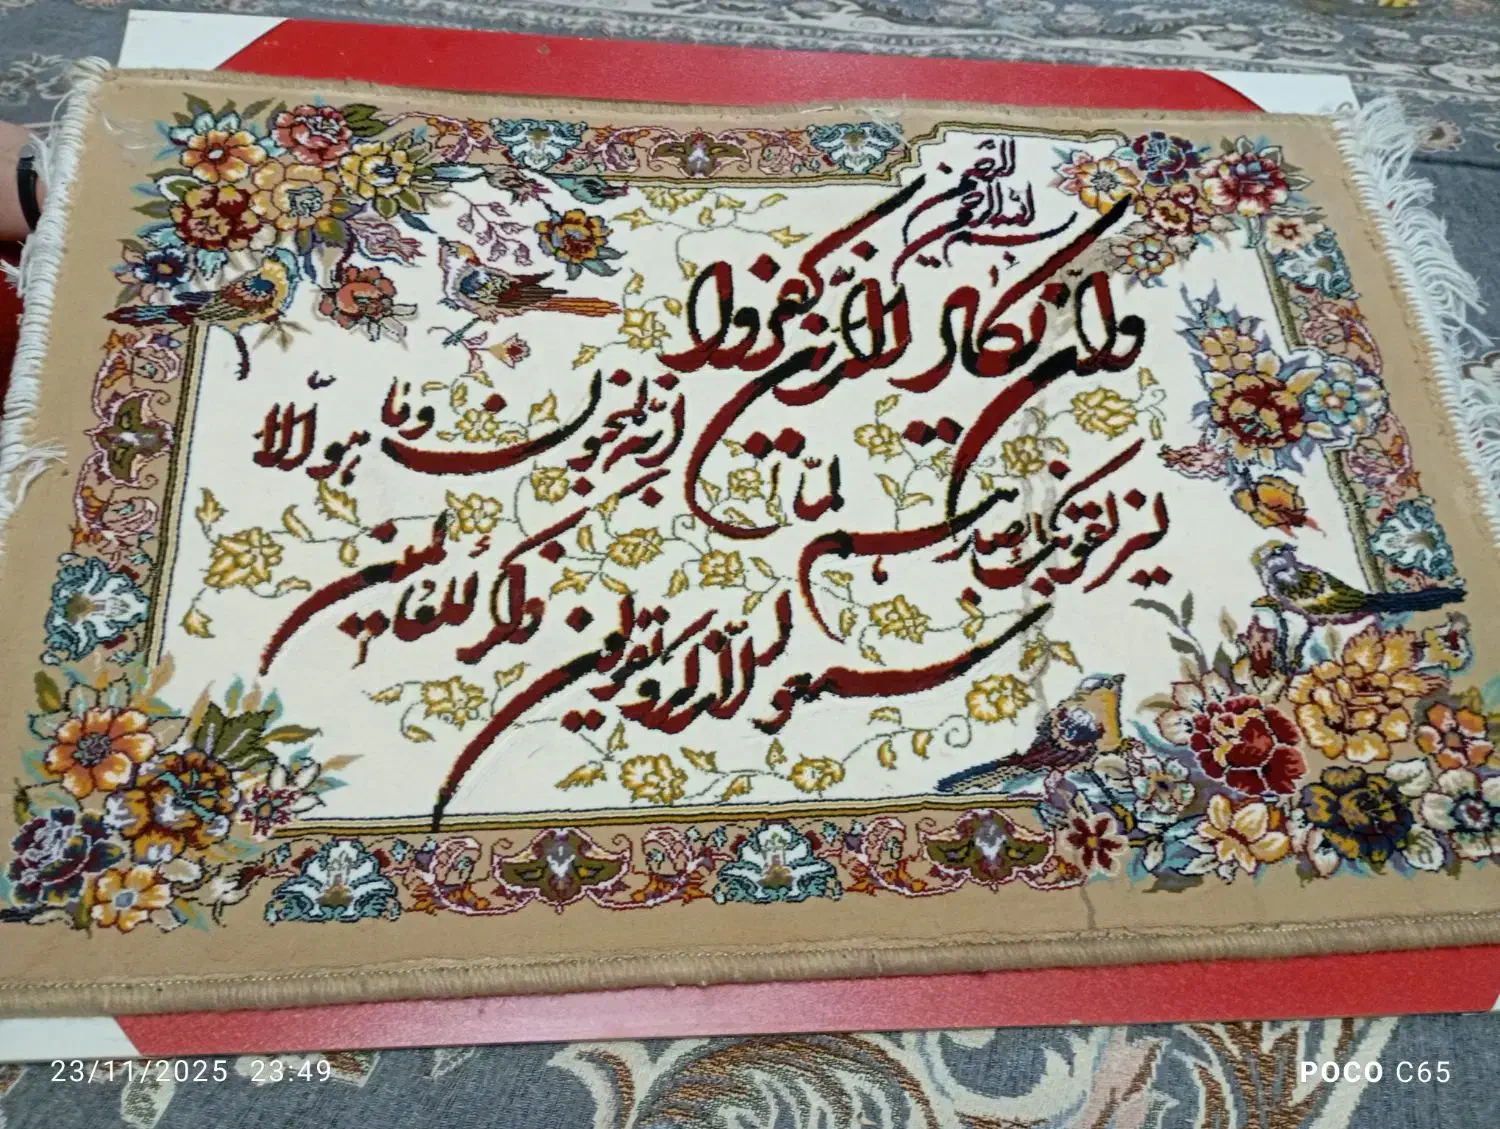 بسم الله الرحمن الرحیم
وان یکاد الذین کفروا
لیزلقونک بابصارهم لما
سمعوا الذکر و یقولون
انه لمجنون وما هو الا
ذکر للعالمین
23/11/2025 23:49
POCO C65